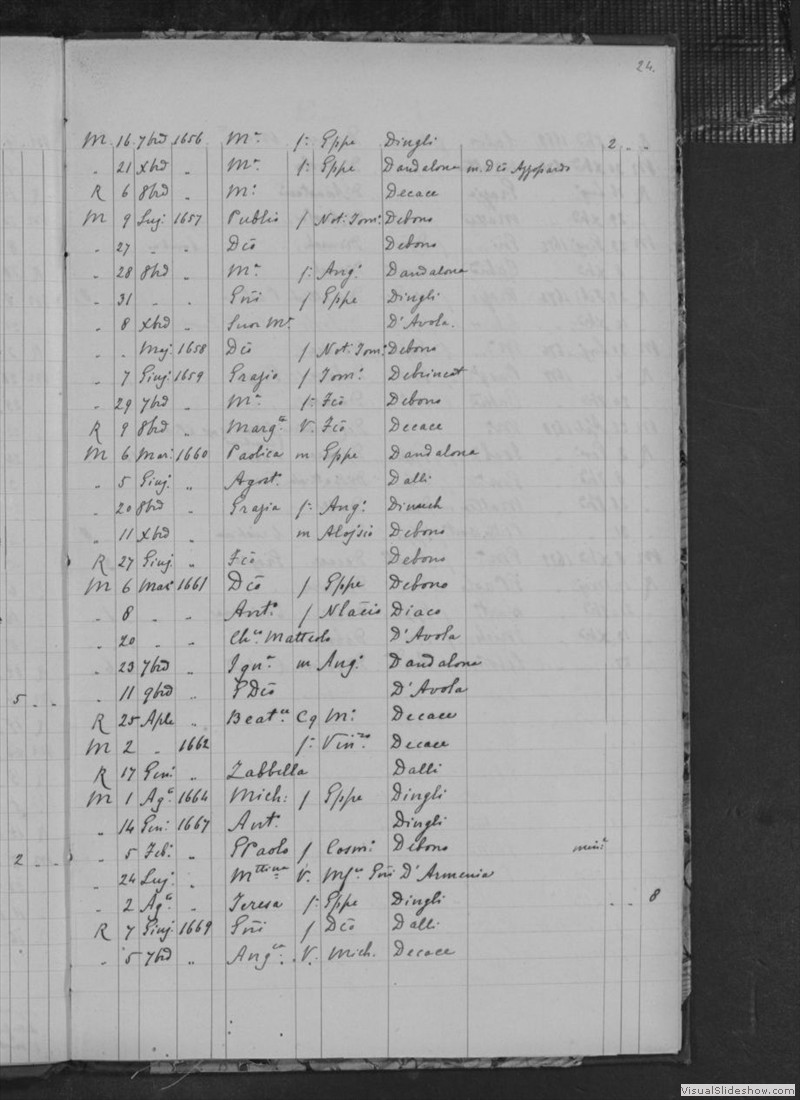 24.
M 16 7brd 1656 Mª f: Eppe Dingli 2 . .
" 21 Xbrd " Mª f: Eppe Dandalona m. Dcõ
R 6 8brd " Mª Decace
M 9 Lug: 1657 Publio f Not: Tomˢ Debono
" 27 " " Dcõ Debono
" 28 8brd " Mª f: Angˢ Dandalona
" 31 " " Gñi f Eppe Dingli
" 8 Xbrd " Suor Mª D'Avola.
" . Mag: 1658 Dcõ f Not: Tomˢ Debono
" 7 Giug: 1659 Grazia f Tomˢ Debrincat
" 29 7brd " Mª f: Fcõ Debono
R 9 8brd " Margª V. Fcõ Decace
M 6 Mar: 1660 Paolica m Eppe Dandalona
" 5 Giug: " Agostˢ Dalli
" 20 8brd " Grazia f: Angˢ
" 11 Xbrd " m Alojsio Debono
R 27 Giug: " Fcõ Debono
M 6 Mar: 1661 Dcõ f Eppe Debono
" 8 " " Antˢ f Diaco
" 20 " " Matteolo D'Avola
" 23 7brd " Ignª m Angˢ Dandalona
5 . . " 11 9brd " Dcõ D'Avola
R 25 Aple " Beatᶜᵉ Cg Mˢ Decace
M 2 " 1662 f: Vinᶻᵒ Decace
R 17 Gen: " Zabbella Dalli
M 1 Agˢ 1664 Mich: f Eppe Dingli
" 14 Gen: 1667 Ant. Dingli
2 . . " 5 Feb: " GPaolo f Cosmˢ Debono
" 24 Lug: " V. Gñi D'Armenia
" 2 Agˢ " Teresa f: Eppe Dingli . . 8
R 7 Giug: 1669 Gñi f Dcõ Dalli
" 5 7brd " Angª V. Mich. Decace
VisualSlideshow.com